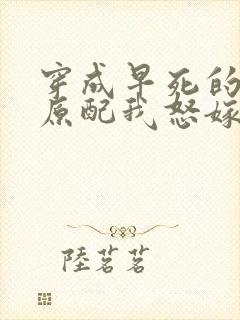 穿成早死的
原配我怒嫁
陸茗茗